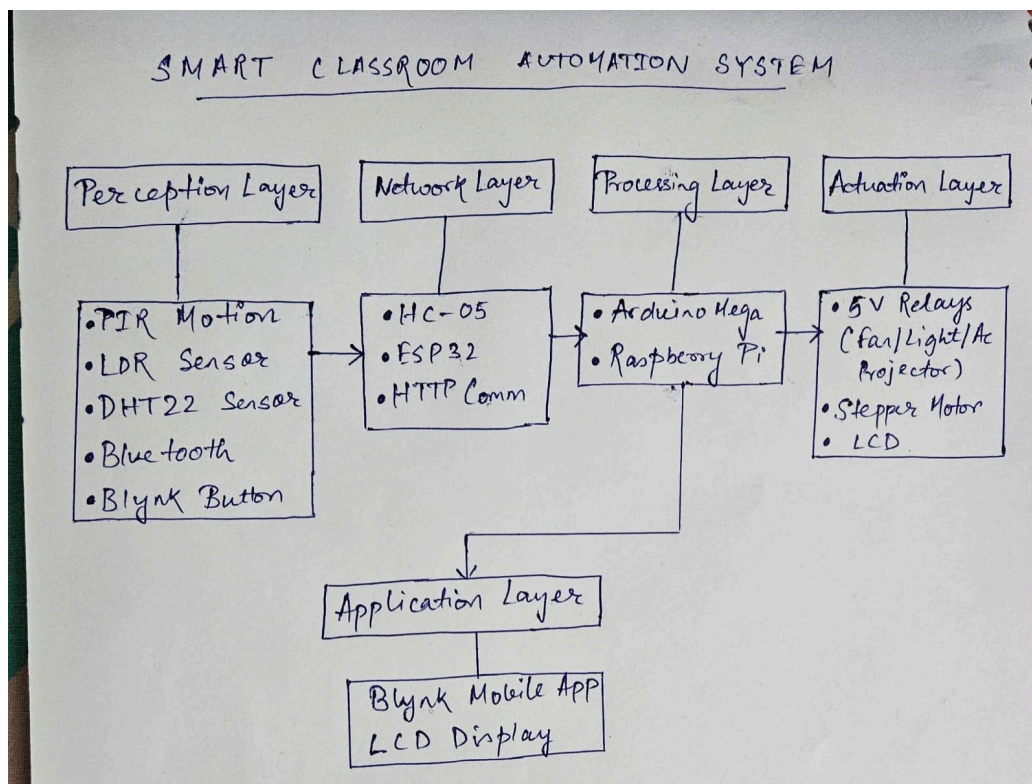 SMART CLASSROOM AUTOMATION SYSTEM
Perception Layer
Network Layer
Processing Layer
Actuation Layer
•PIR Motion
•LDR Sensor
•DHT22 Sensor
•Bluetooth
•Blynk Button
•HC-05
•ESP32
•HTTP Comm
•Arduino Mega
•Raspberry Pi
•5V Relays
(fan/Light/Ac
Projector)
•Stepper Motor
•LCD
Application Layer
Blynk Mobile App
LCD Display